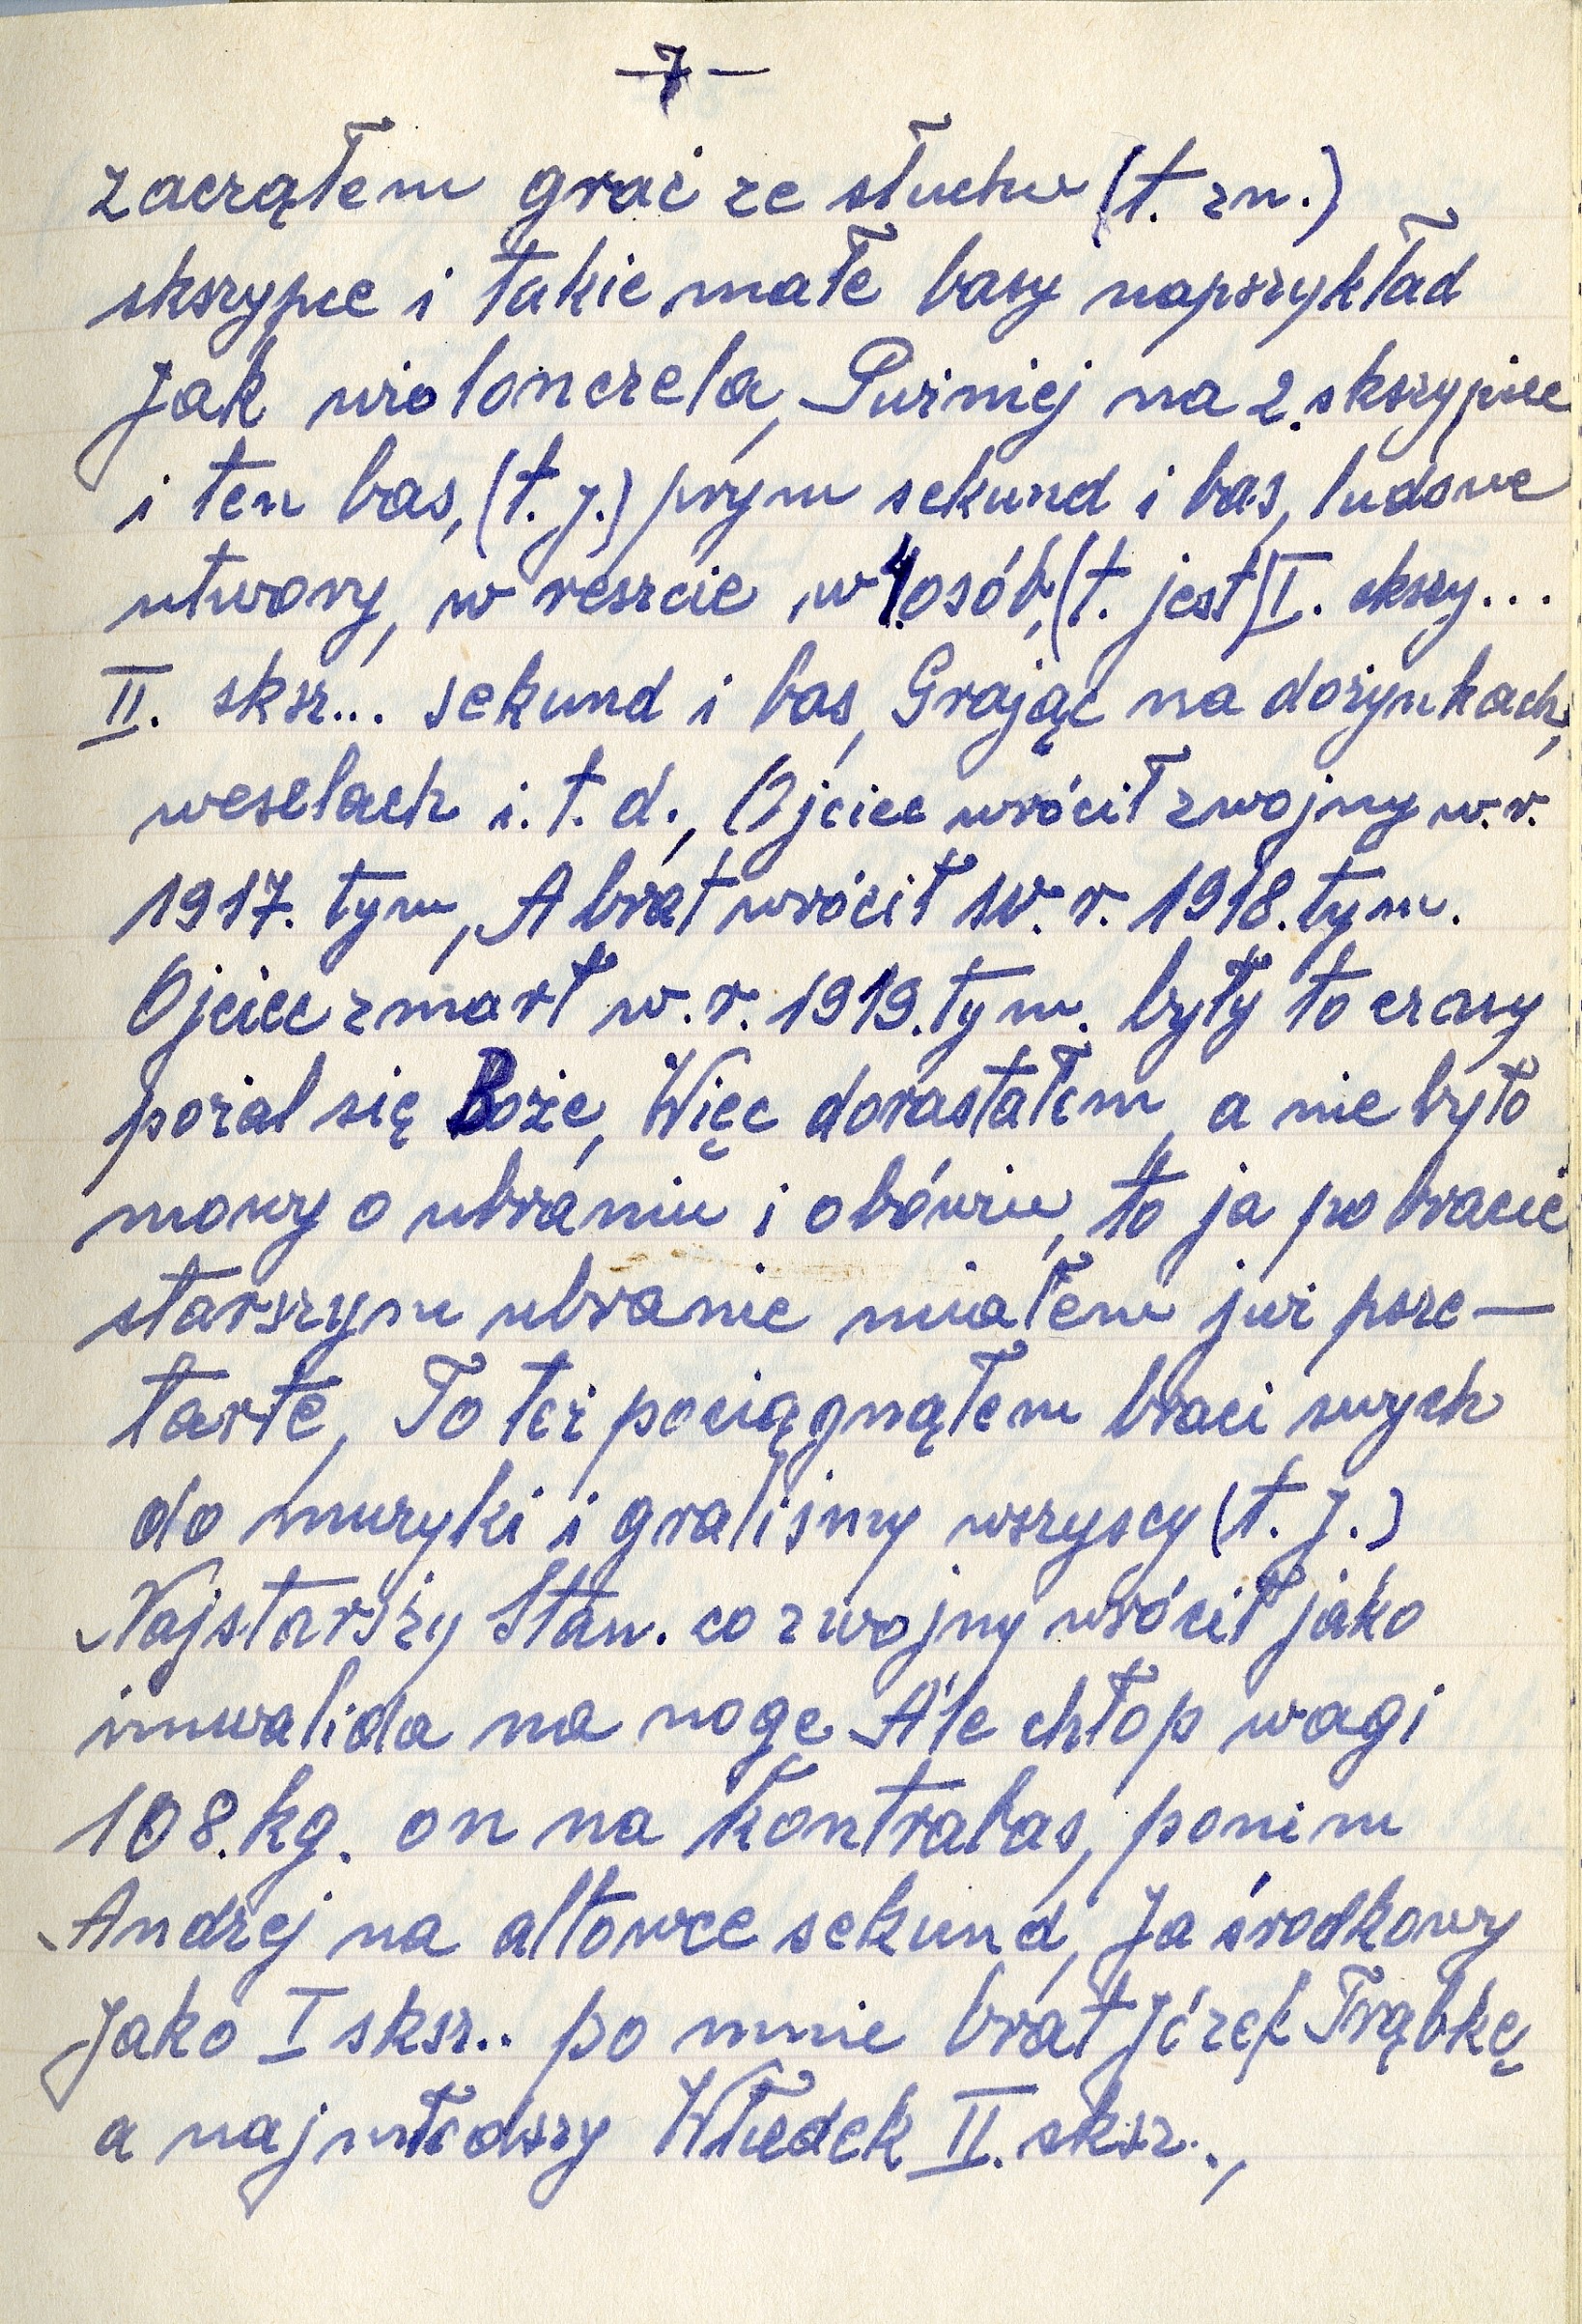 — 7 —
zacząłem grać ze słuchu (t. zn.)
skszypce i takie małe basy napszykład
Jak wiolonczela, Pużniej na 2. skszypice
i ten bas, (t. j.) prym sekund i bas, ludowe
utwory, w reszcie w 4. osób, (t. jest) I. skszy...
II. sksz... sekund i bas, Grając na dożynkach,
weselach i. t. d., Ojciec wrócił z wojny w. r.
1917. tym, A brat wrócił w. r. 1918. tym.
Ojciec zmarł w. r. 1919. tym. były to czasy
pożal się Boże, Więc dorastałem, a nie było
mowy o ubraniu i obówiu, to ja po bracie
starszym ubranie miałem już psze—
tarte, To też pociągnąłem braci swych
do muzyki i graliśmy wszyscy (t. j.)
Najstarszy Stan. co z wojny wrócił jako
inwalida na nogę Ale chłop wagi
108. kg. on na kontrabas, ponim
Andrzej na altowce sekund, Ja środkowy
Jako I sksz.. po mnie brat Józef Trąbkę
a najmłodszy Władek II. sksz..,